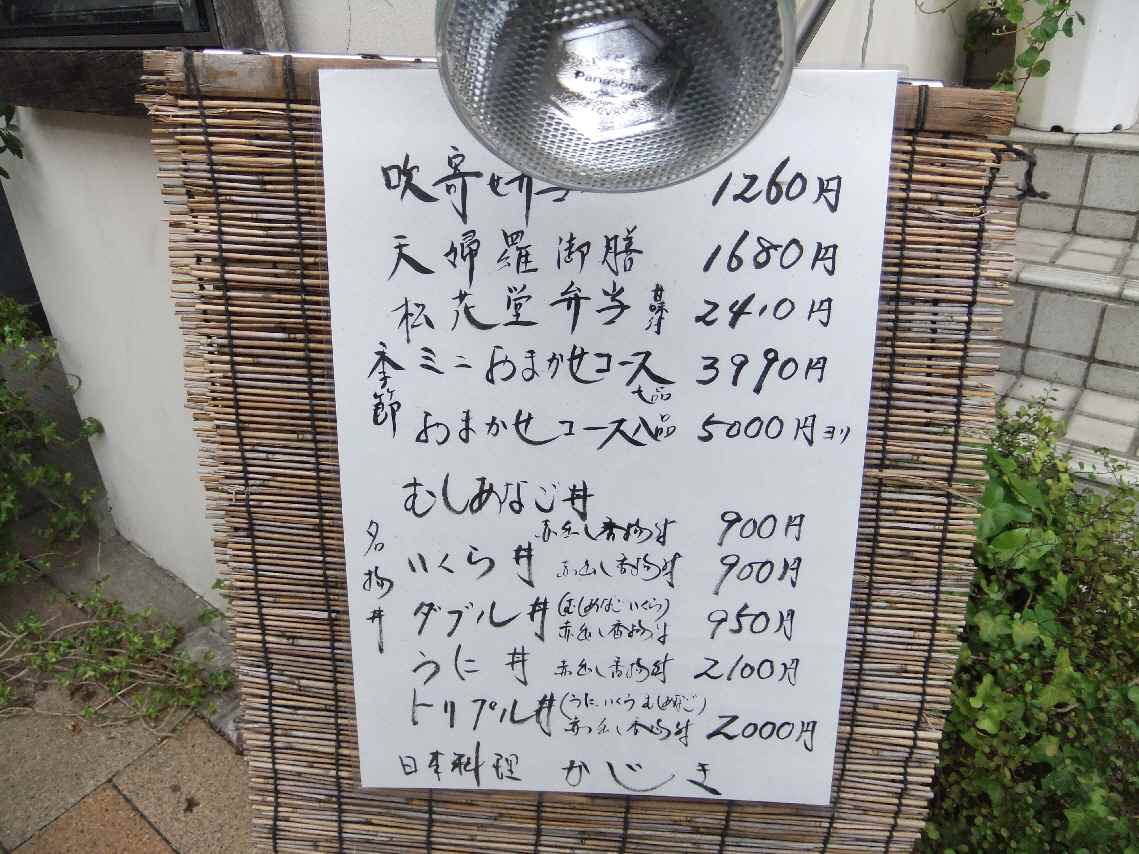 Panasonic
吹寄せ弁当 1260円
天婦羅御膳 1680円
松花堂弁当 甘味付 2410円
季節
ミニおまかせコース 七品 3990円
おまかせコース 八品 5000円ヨリ
名物丼
むしあなご丼
赤出し香物付 900円
いくら丼 赤出し香物付 900円
ダブル丼 (むしあなご いくら)
赤出し香物付 950円
うに丼 赤出し香物付 2100円
トリプル丼 (うに、いくら むしあなご)
赤出し香物付 2000円
日本料理 かじき